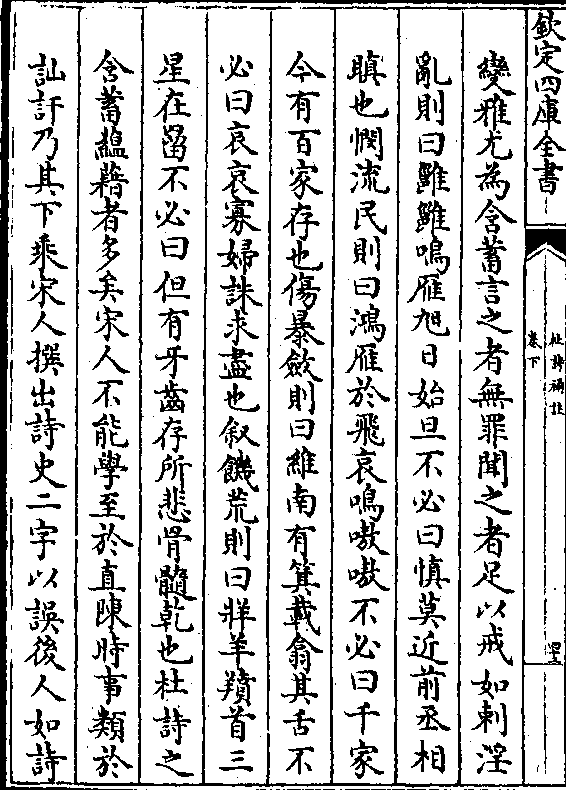 欽定四庫全書
杜詩補註
卷下
變雅尤為含蓄言之者無罪聞之者足以戒如刺淫
亂則曰雝雝鳴雁旭日始旦不必曰慎莫近前丞相
瞋也憫流民則曰鴻雁於飛哀鳴嗷嗷不必曰千家
今有百家存也傷暴斂則曰維南有箕載翕其舌不
必曰哀哀寡婦誅求盡也叙饑荒則曰牂羊羵首三
星在罶不必曰但有牙齒存所悲骨髓乾也杜詩之
含蓄蘊藉者多矣宋人不能學至於直陳時事類於
訕訐乃其下乘宋人撰出詩史二字以誤後人如詩